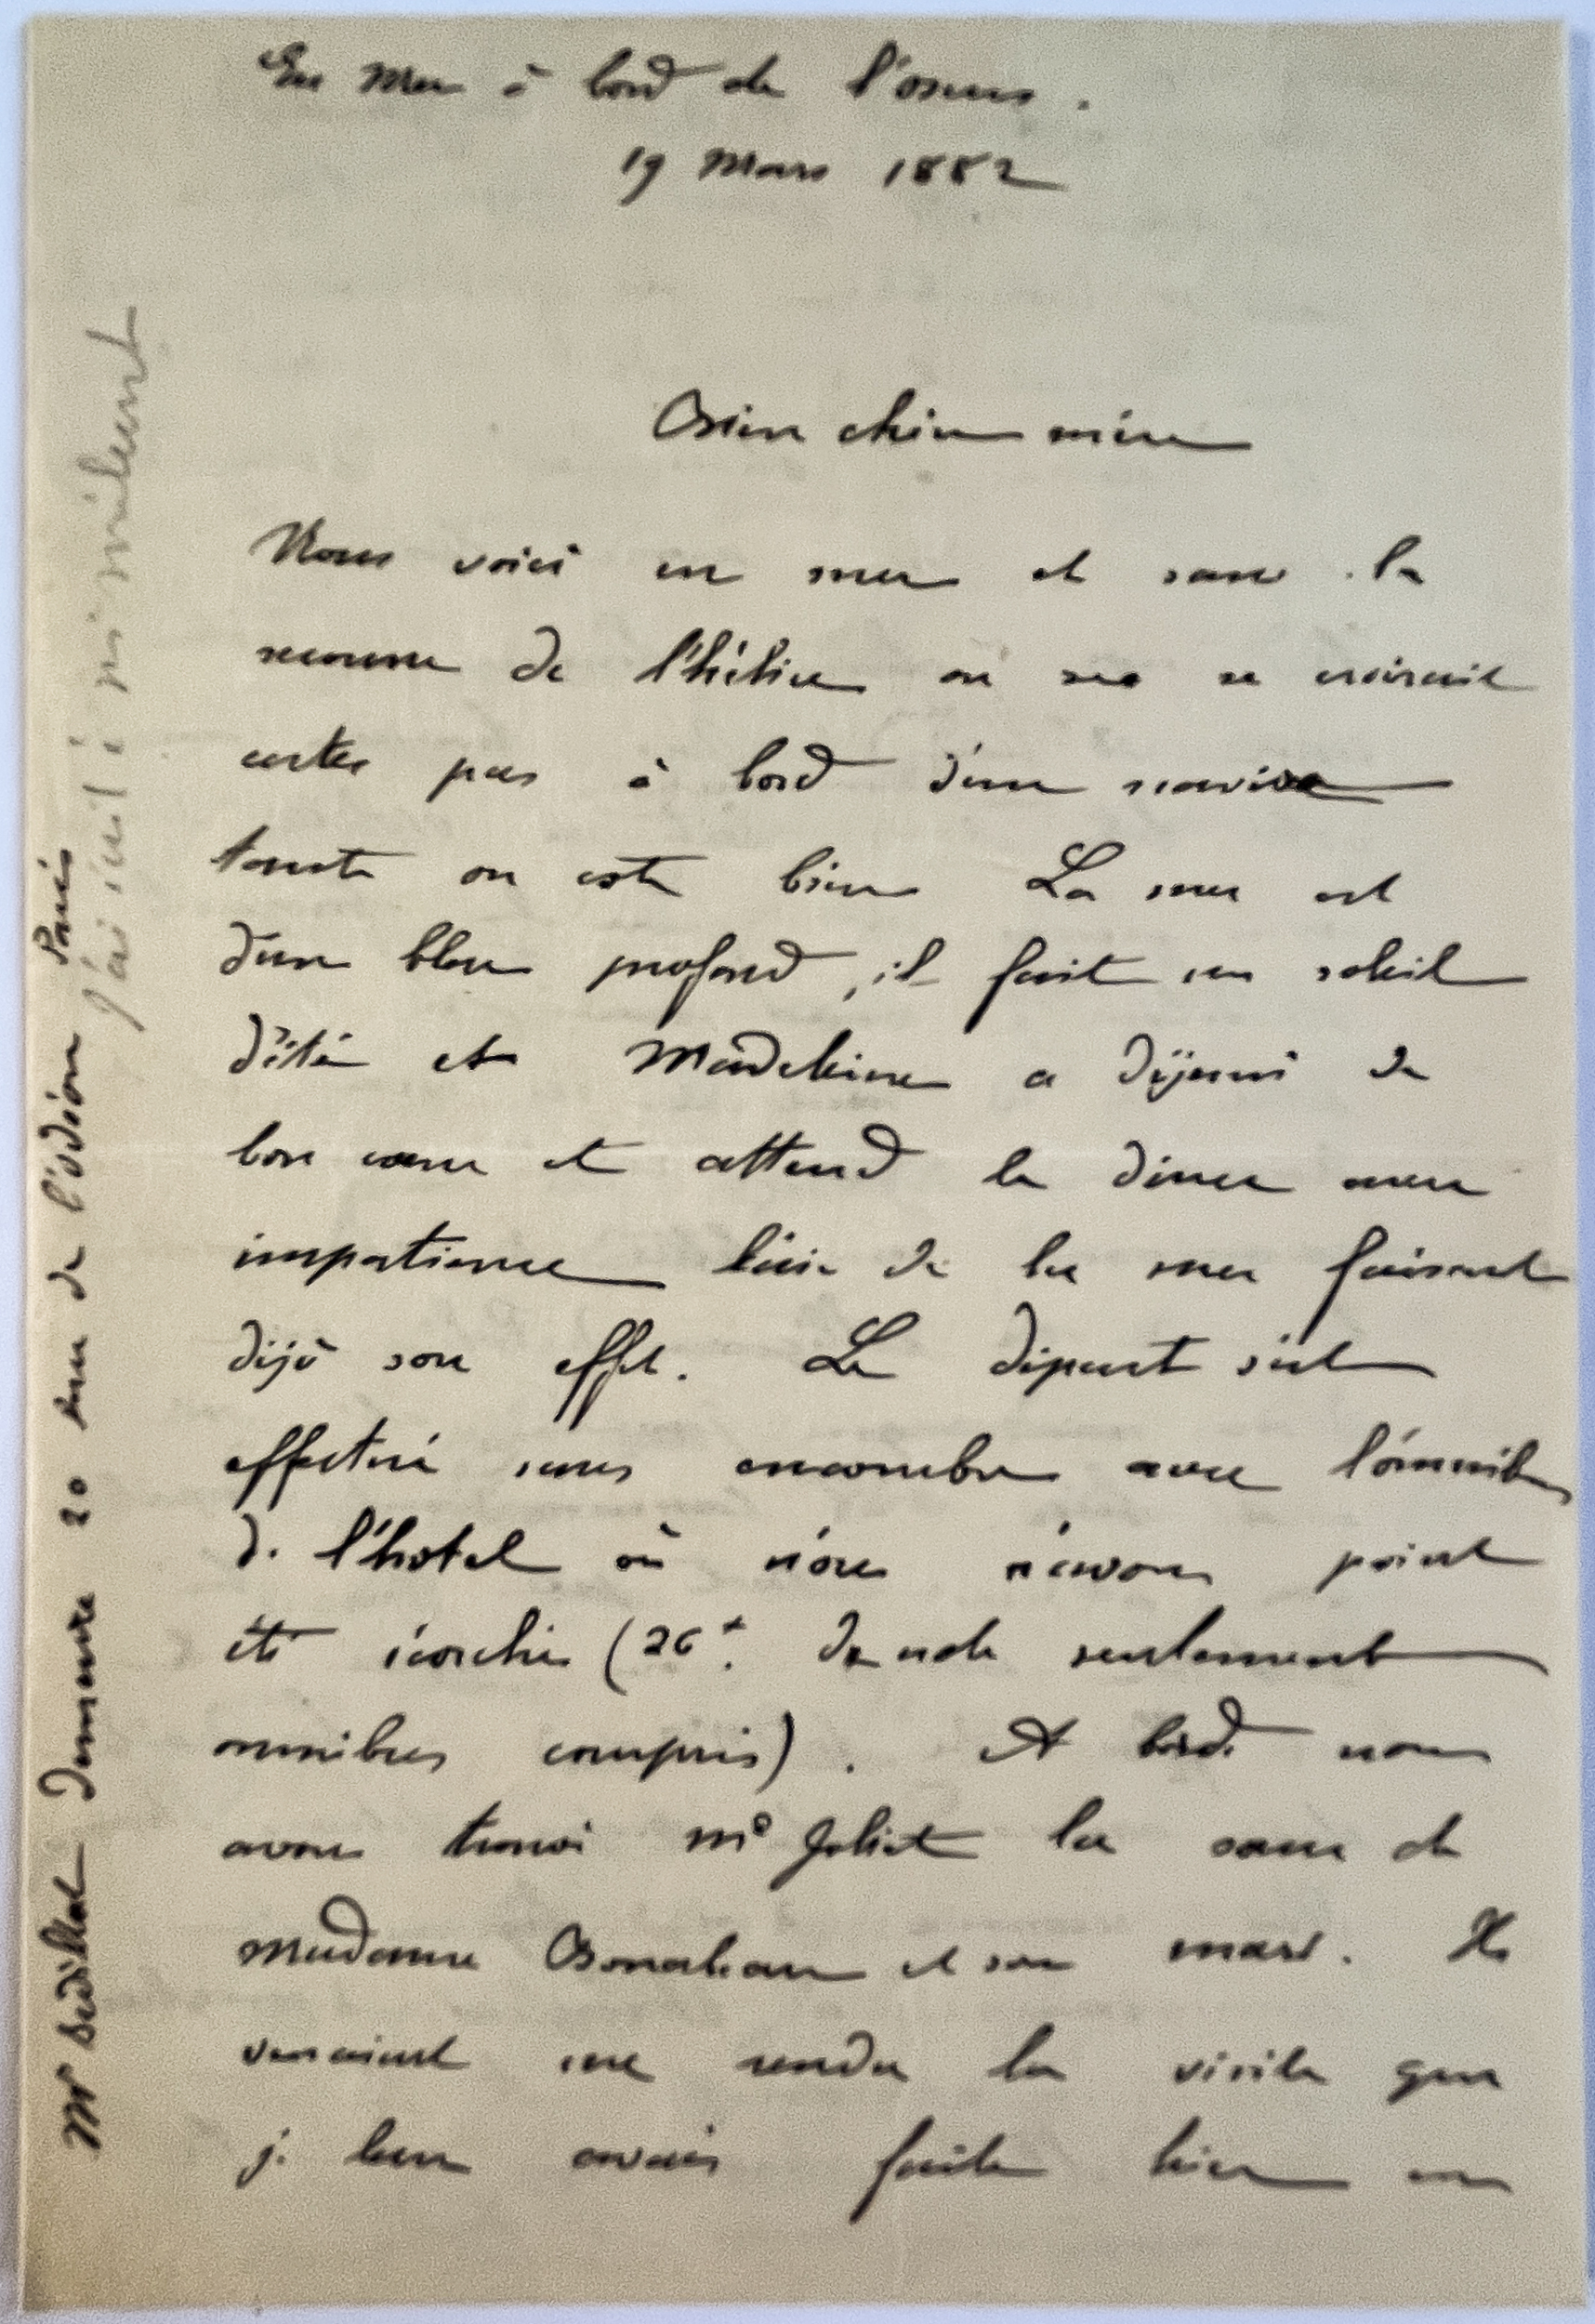 En Mer à bord de l'oxus.
19 Mars 1882
Ma chère mère
Nous voici en mer et sans la
secousse de l'hélice on ne se croirait
certes pas à bord d'un navire
tant on est bien La mer est
d'un bleu profond, il fait un soleil
d'été et Madeleine a déjeuné de
bon cœur et attend le diner avec
impatience l'air de la mer faisant
déjà son effet. Le départ s'est
effectué sans encombre avec l'omnibus
de l'hotel où nous n'avons point
été écorchés (26 f. seulement
omnibus compris). A bord nous
avons trouvé Me Joliet la sœur de
madame et son mari. Ils
venaient me rendre la visite que
je leur avais faite hier en
Mr Sédillot demeure 20 rue de l'odéon Paris
j'ai écrit à